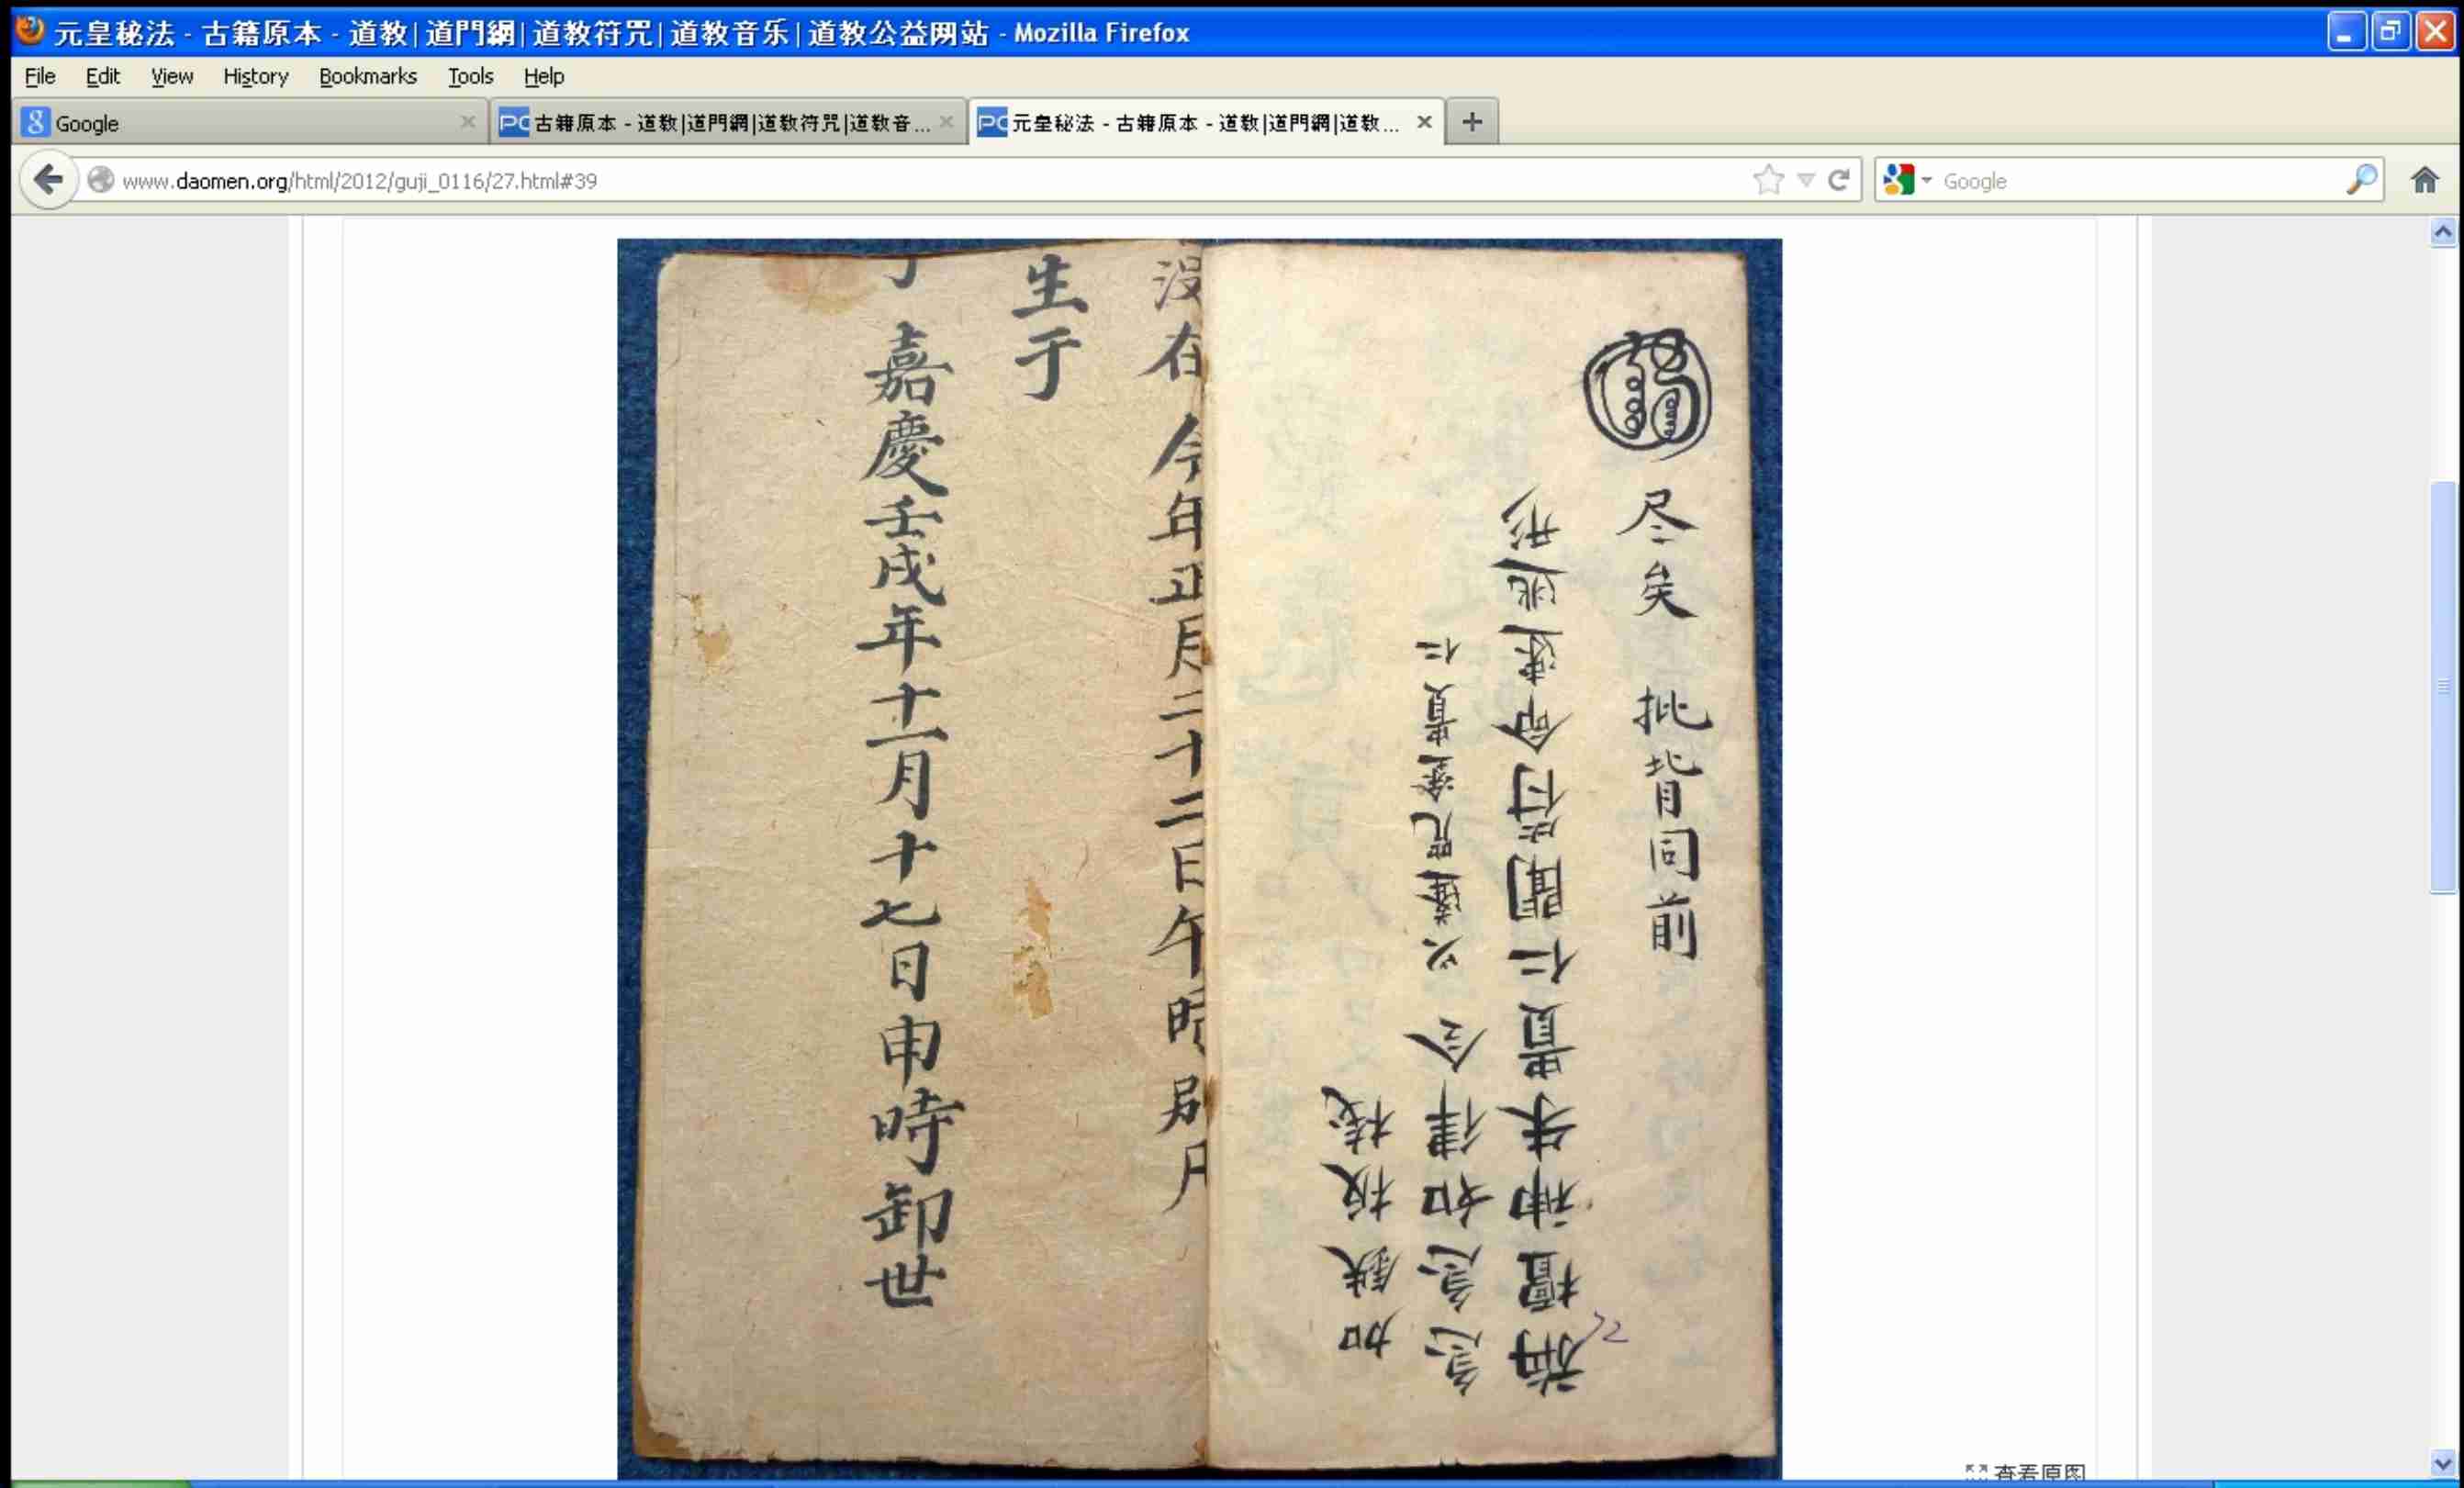 元皇秘法 - 古籍原本 - 道教|道門網|道教符咒|道教音乐|道教公益网站 - Mozilla Firefox
File Edit View History Bookmarks Tools Help
Google
古籍原本 - 道教|道門網|道教符咒|道教音...
元皇秘法 - 古籍原本 - 道教|道門網|道教...
www.daomen.org/html/2012/guji_0116/27.html#39
Google
尽矣 批背同前
檀神朱貴仁聞符命速逃形
急急如律令 又遣咒塗貴仁
加鉄板栈
没在 今年正月二十二日午時
生于
嘉慶壬戌年十一月十七日申時卸世
查看原图